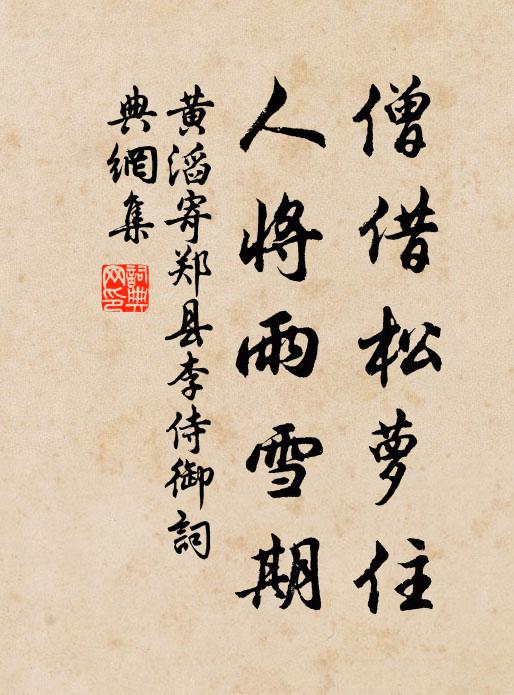 僧借松萝住
人將雨雪期
黄滔寄郑县李侍御詞
典網集
詞典
网印